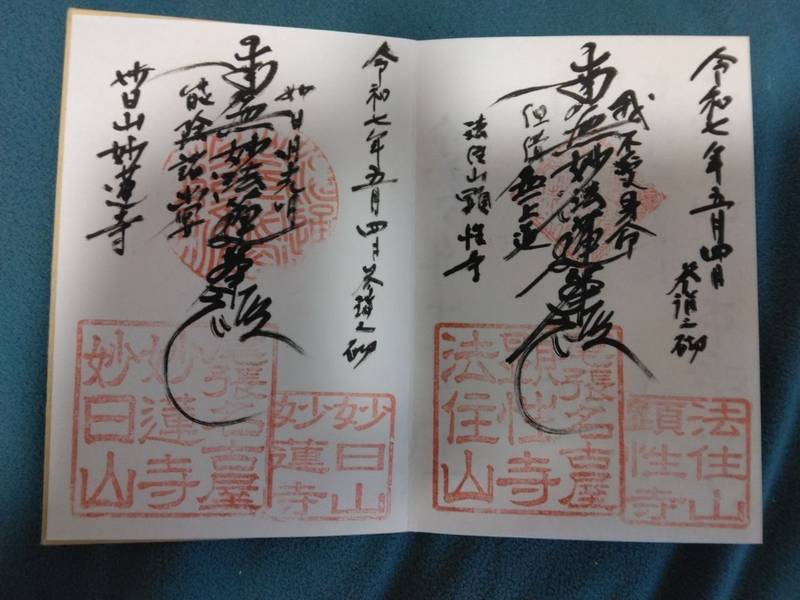 令和七年五月四日
参詣之砌
我不愛身命
南無妙法蓮華経
但惜無上道
法住山顕性寺
尾張名古屋
顕性寺
法住山
法住山
顕性寺
令和七年五月四日 参詣之砌
如日月光明
南無妙法蓮華経
能除諸幽冥
妙日山妙蓮寺
尾張名古屋
妙蓮寺
妙日山
妙日山
妙蓮寺